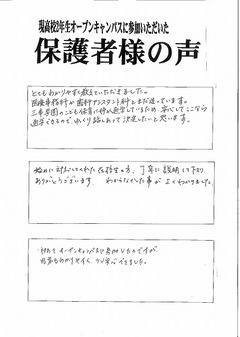 現高校2年生オープンキャンパスに参加いただいた
保護者様の声
とてもわかりやすく教えていただきました。
医療事務科か歯科アシスタント科とまだ迷っています。
三幸学園のこども保育に姉が通学しているため、安心してここなら
通学できるので、ゆっくり話しあって決定したいと思います。
始めに対応してくれた在校生の方、丁寧に説明して下さり
ありがとうございます。わからなかった事がよくわかりました。
初めてオープンキャンパスに参加したのですが